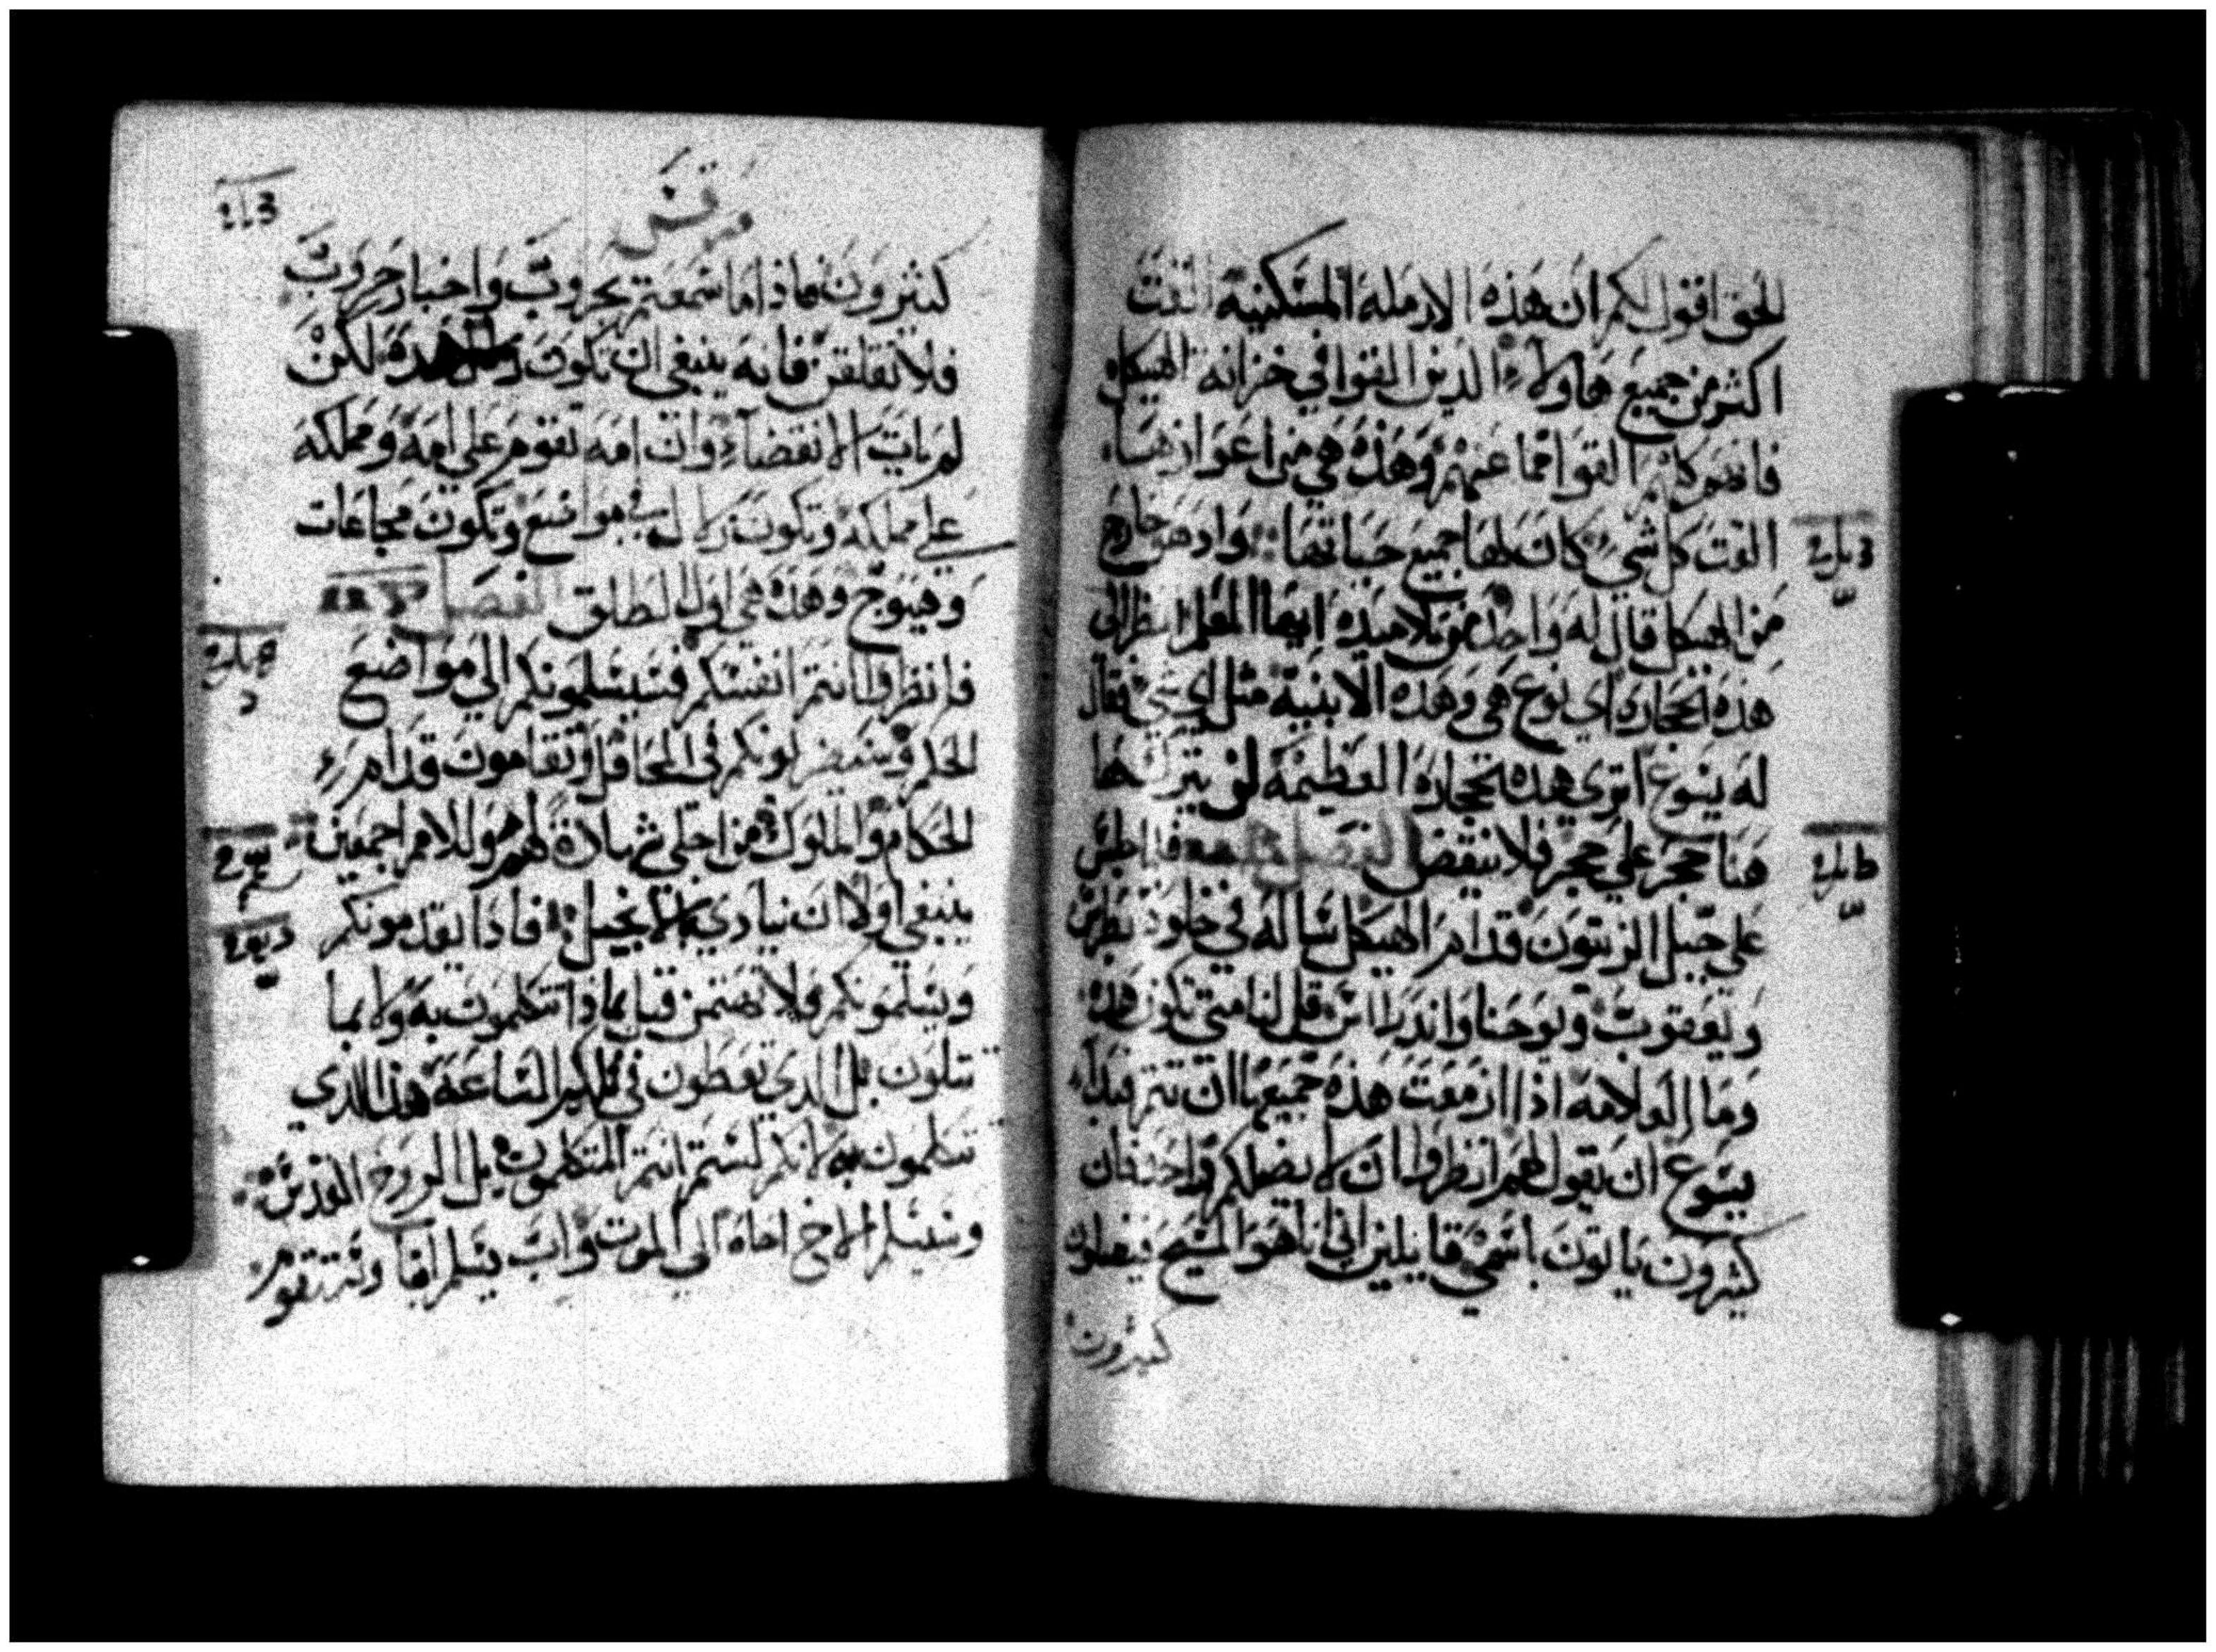 الحق اقول لكم ان هذه الارمله المسكينة القت
اكثر من جميع هاولاء الدين القوا في خزانه الهيكل
القوا مما عندهم وهذه هي من اعوازها
القت كل شي كان لها جميع حياتها وادهو خارج
من الهيكل قال له واحد من تلاميذه ايها المعلم انظر الى
هذه الحجاره اي نوع هي وهذه الابنية مثل اي شي فقال
له يسوع اترى هذه الحجاره العظيمة لن يترك هاهنا
حجر على حجر فلا ينقض الفصل فلما جلس
على جبل الزيتون قدام الهيكل ساله في خلوة بطرس
ويعقوب ويوحنا واندراس قل لنا متى تكون هذه
وما العلامه اذا ازمعت هذه جميعها ان تتم فبدا
يسوع ان يقول لهم انظروا ان لا يضلكم احد فان
كثيرون ياتون باسمي قايلين اني انا هو المسيح فيضلون
كثيرون
مرقس
كثيرون فاذا ما سمعتم بحروب واخبار حروب
فلا تقلقن فانه ينبغي ان تكون هذه لكن
لم يات الانقضاء وان امه تقوم على امه ومملكه
على مملكه وتكون زلازل في مواضع وتكون مجاعات
وهيوج وهذه هي اول الطلق الفصل
فانظروا انتم انفسكم فسيسلمونكم الى مواضع
الحكم وسيضربونكم في المحافل وتقامون قدام
الحكام والملوك من اجلي شهادة لهم وللامم اجمعين
ينبغي اولا ان ينادى بالانجيل فاذا يقدمونكم
ويسلمونكم فلا تهتمن قبل بماذا تتكلمون به ولا بما
تتلون بل الدي تعطون في تلكم الساعة هذا الدي
تتكلمون به لانكم لستم انتم المتكلمون بل الروح القدس
وسيسلم الاخ اخاه الى الموت واب يسلم ابنا وستقوم